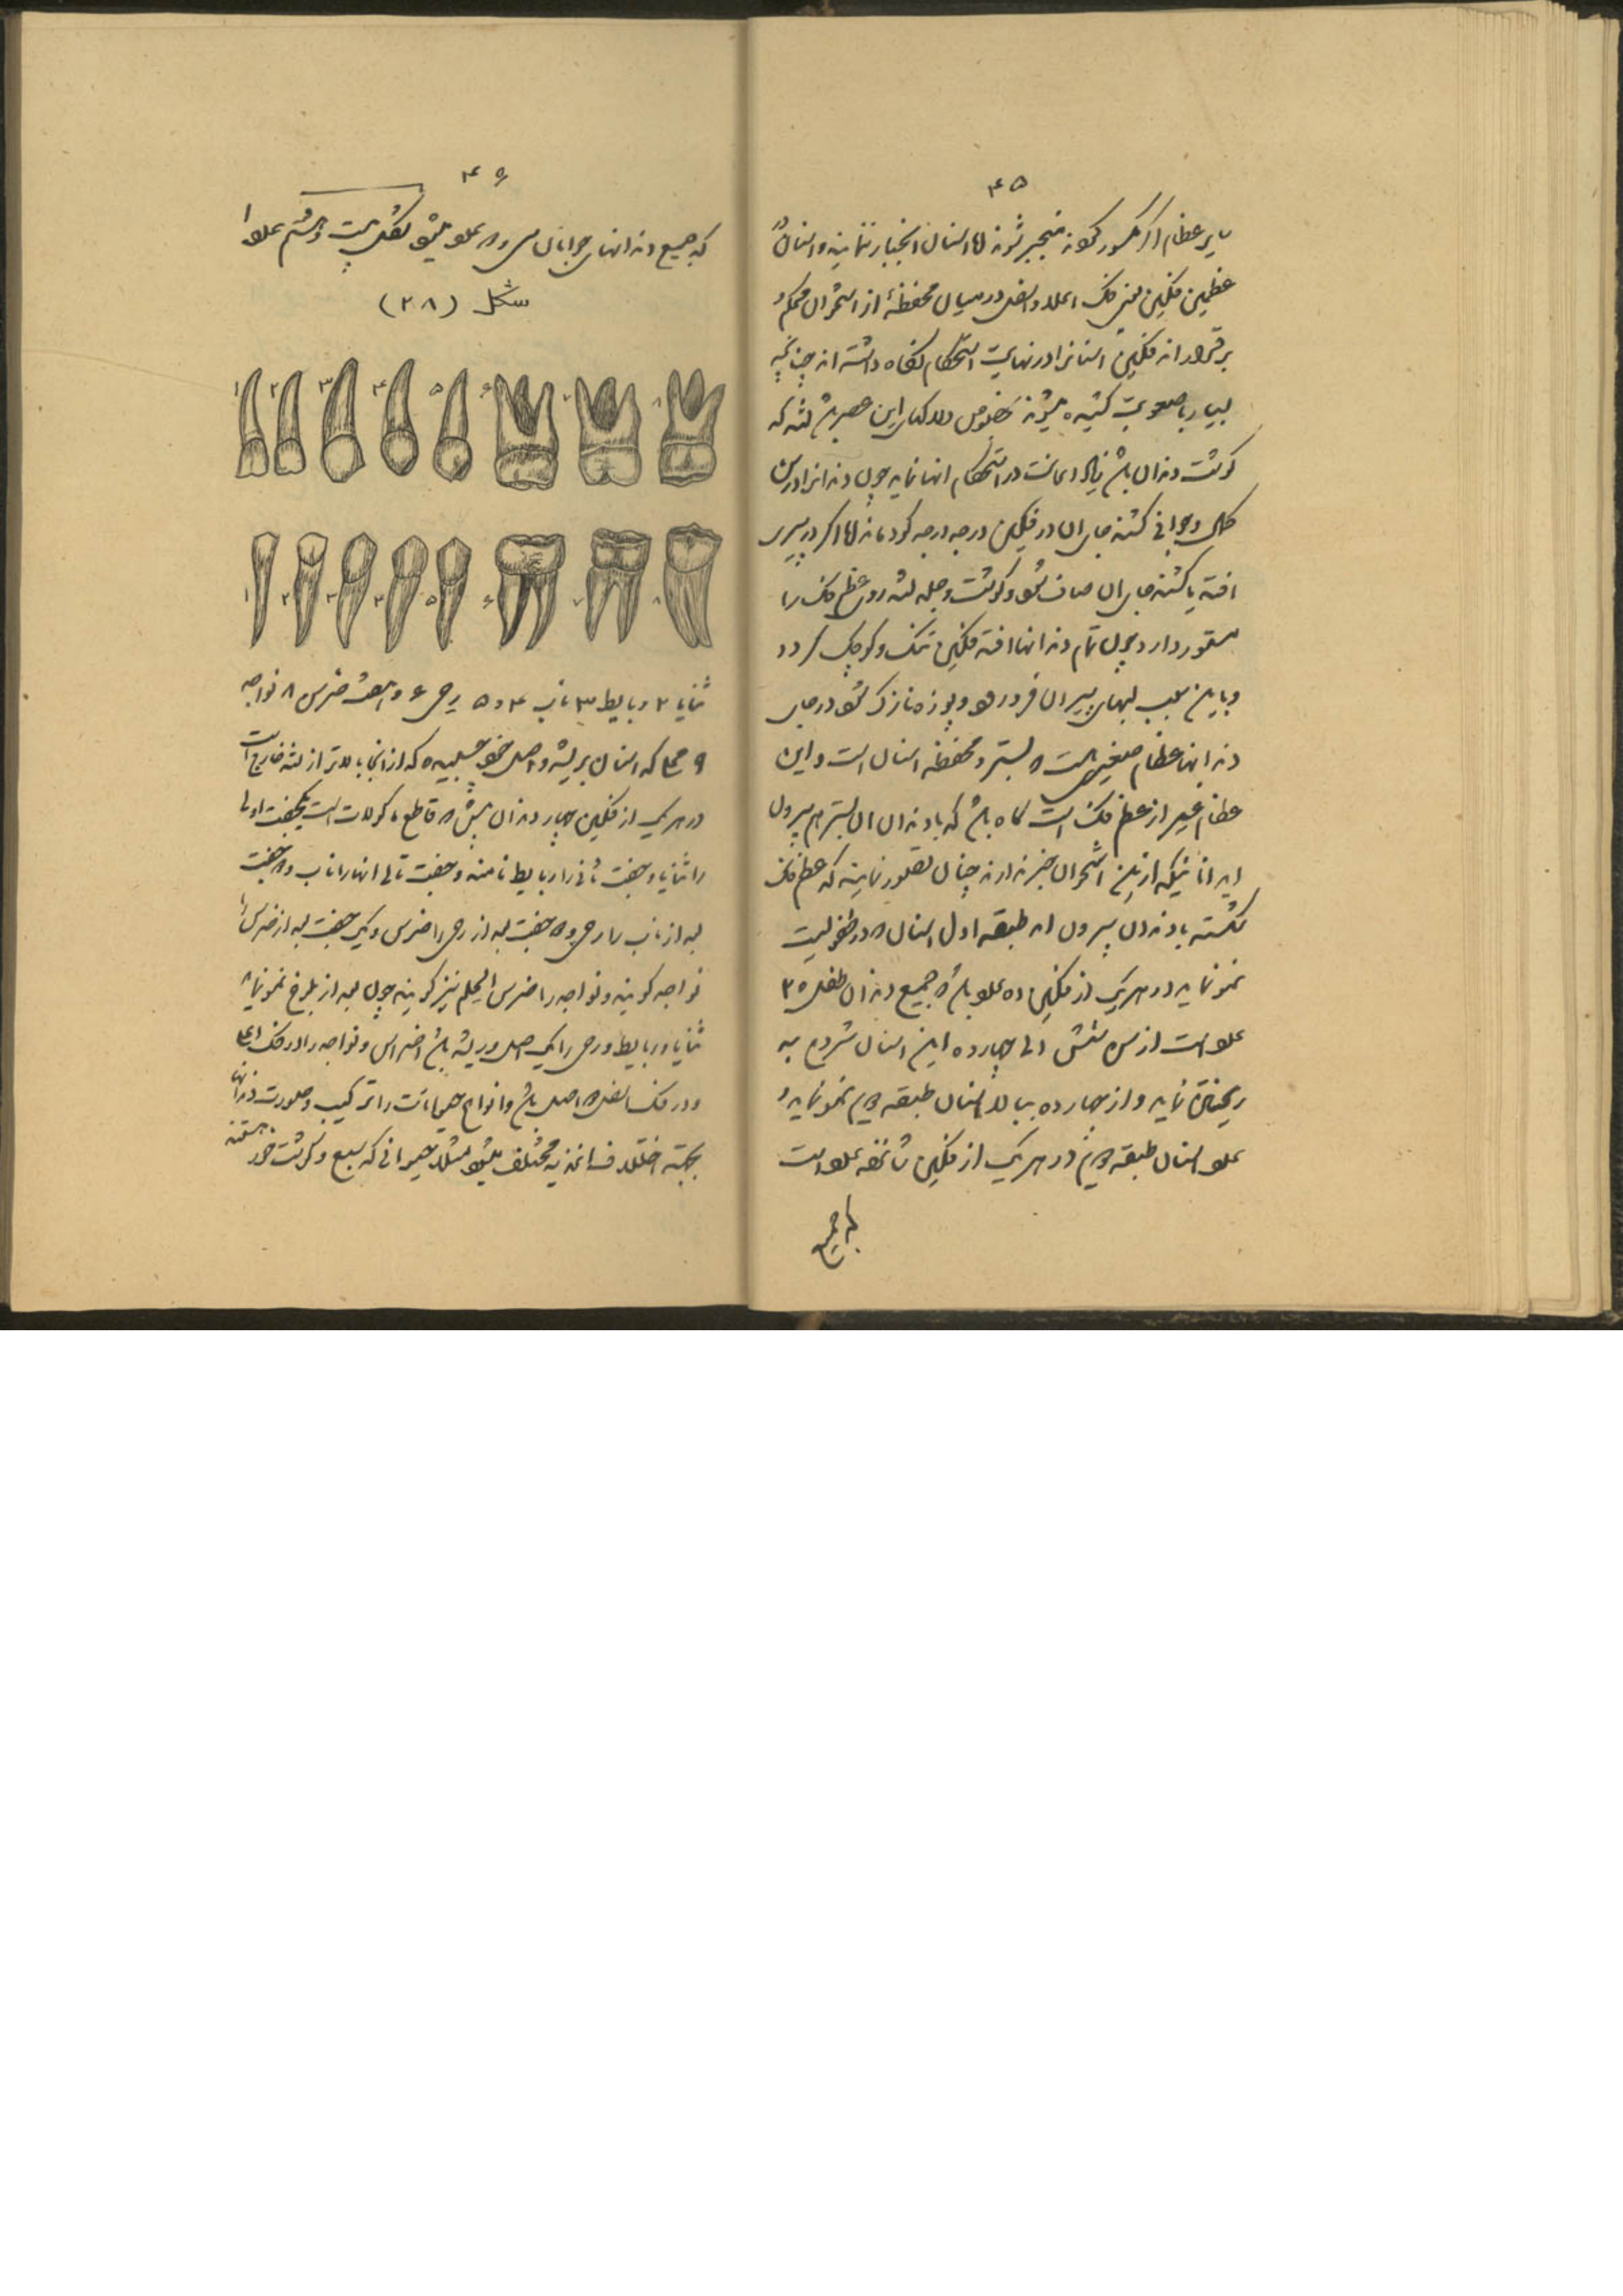 ۴۵
سایر عظام اگر مکسور گردند منجبر شوند اما اسنان انجبار ننمایند و اسنان در
عظمین فکین یعنی فک اعلا و اسفل در میان محفظهٔ از استخوان محکم و
برقرارند فکین اسنانرا در نهایت استحکام نگاه داشته‌اند چنانکه
بسیار با صعوبت کشیده میشوند بخصوص این عصر باشد لثه که
گوشت دندان باشد زیاد اعانت در استحکام انها نماید چون دندانرا در سن
و جوانی کشند جای ان در فکین درجه درجه گود ماند اما اگر در پیری
افتد یا کشند جای ان صاف شود و گوشت و جلد لثه روی عظم فک را
مستور دارد و چون تمام دندانها افتد فکین تنک و کوچک گردد
و باین سبب لبهای پیران فرو رود و پوزه نازک شود در جای
دندانها عظام صغیری است که بستر و محفظه اسنان است و این
عظام غیر از عظم فک است گاه باشد که با دندان ان بستر هم بیرون
اید انانیکه ازین استخوان خبر ندارند چنان تصور نمایند که عظم فک
شکسته با دندان بیرون امد طبقه اول اسنان که در طفولیت
نمو نماید در هر یک از فکین ده عدد باشد که جمیع دندان طفل ۲۰
عدد است از سن شش الی چهارده این اسنان شروع به
ریختن نماید و از چهارده ببالا اسنان طبقه دویم نمو نماید و
عدد اسنان طبقه دویم در هر یک از فکین شانزده عدد است
که جمیع
۴۶
که جمیع دندانهای جوانان سی و دو عدد میشود بشکل بیست و هشتم علوا
شکل (۲۸)
۱ ۲ ۳ ۴ ۵ ۶ ۷ ۸
۱ ۲ ۳ ۴ ۵ ۶ ۷ ۸
ثنایا ۲ رباعیط ۳ ناب ۴ و ۵ رحی ۶ و ۷ ضرس ۸ نواجد
۹ محل که اسنان بریشه و اصل خود چسبیده که از انجا بالاتر از لثه خارج است
در هر یک از فکین چهار دندان پیش که قاطع ماکولات است یکجفت اولی
را ثنایا و جفت ثانی را رباعیط نامند و جفت تالی انها را ناب و دو جفت
بعد از ناب را رحی و دو جفت بعد از رحی را ضرس و یک جفت بعد از ضرس را
نواجد گویند و نواجد را ضرس الحلم نیز گویند چون بعد از بلوغ نمو نماید
ثنایا و رباعیط و رحی را یک اصل و ریشه باشد اضراس و نواجد را در فک اعلا
و در فک اسفل دو اصل باشد و انواع حیوانات را ترکیب و صورت دندانها
بجهته اختلاف اغذیه مختلف میشود مثلا حیوانی که سبع و گوشت خور هستند